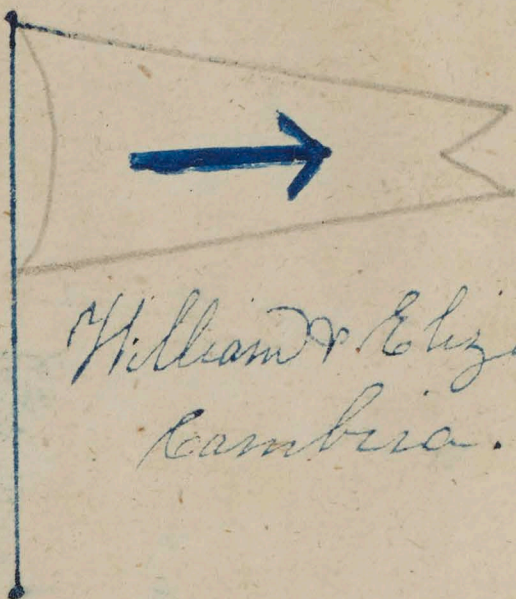 William & Eliz
Cambria.